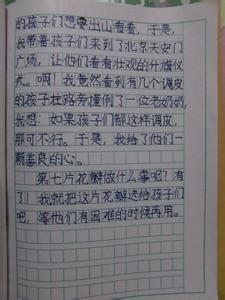 的孩子们想要出山看看，于是，
我带着孩子们来到了北京天安门
广场，让他们看看壮观的升旗仪
式。啊！我竟然看到有几个调皮
的孩子在路旁撞倒了一位老奶奶，
我想：如果孩子们都这样调皮，
那可不行。于是，我给了他们一
颗善良的心。
第七片花瓣做什么事呢？有
了！我就把这片花瓣送给孩子们
吧，等他们有困难的时候再用。